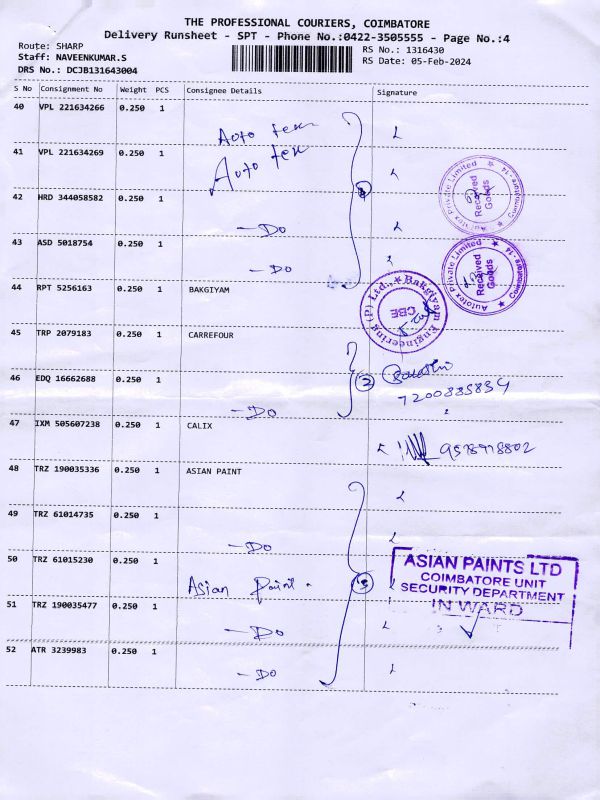 THE PROFESSIONAL COURIERS, COIMBATORE
Delivery Runsheet - SPT - Phone No.:0422-3505555 - Page No.:4
Route: SHARP
RS No.: 1316430
Staff: NAVEENKUMAR.S
RS Date: 05-Feb-2024
DRS No.: DCJB131643004
S No Consignment No Weight PCS Consignee Details Signature
40 VPL 221634266 0.250 1
Auto tex
41 VPL 221634269 0.250 1
Auto tex
42 HRD 344058582 0.250 1
- Do
43 ASD 5018754 0.250 1
- Do
Autotex Private Limited
Received
Goods
Coimbatore - 14
Autotex Private Limited
Received
Goods
Coimbatore - 14
44 RPT 5256163 0.250 1 BAKGIYAM
Bakgiyam Engineering (P) Ltd.,
CBE
45 TRP 2079183 0.250 1 CARREFOUR
46 EDQ 16662688 0.250 1
2
7200885834
- Do
47 IXM 505607238 0.250 1 CALIX
9578978802
48 TRZ 190035336 0.250 1 ASIAN PAINT
49 TRZ 61014735 0.250 1
- Do
50 TRZ 61015230 0.250 1
Asian Paint
ASIAN PAINTS LTD
COIMBATORE UNIT
SECURITY DEPARTMENT
IN WARD
51 TRZ 190035477 0.250 1
- Do
52 ATR 3239983 0.250 1
- Do